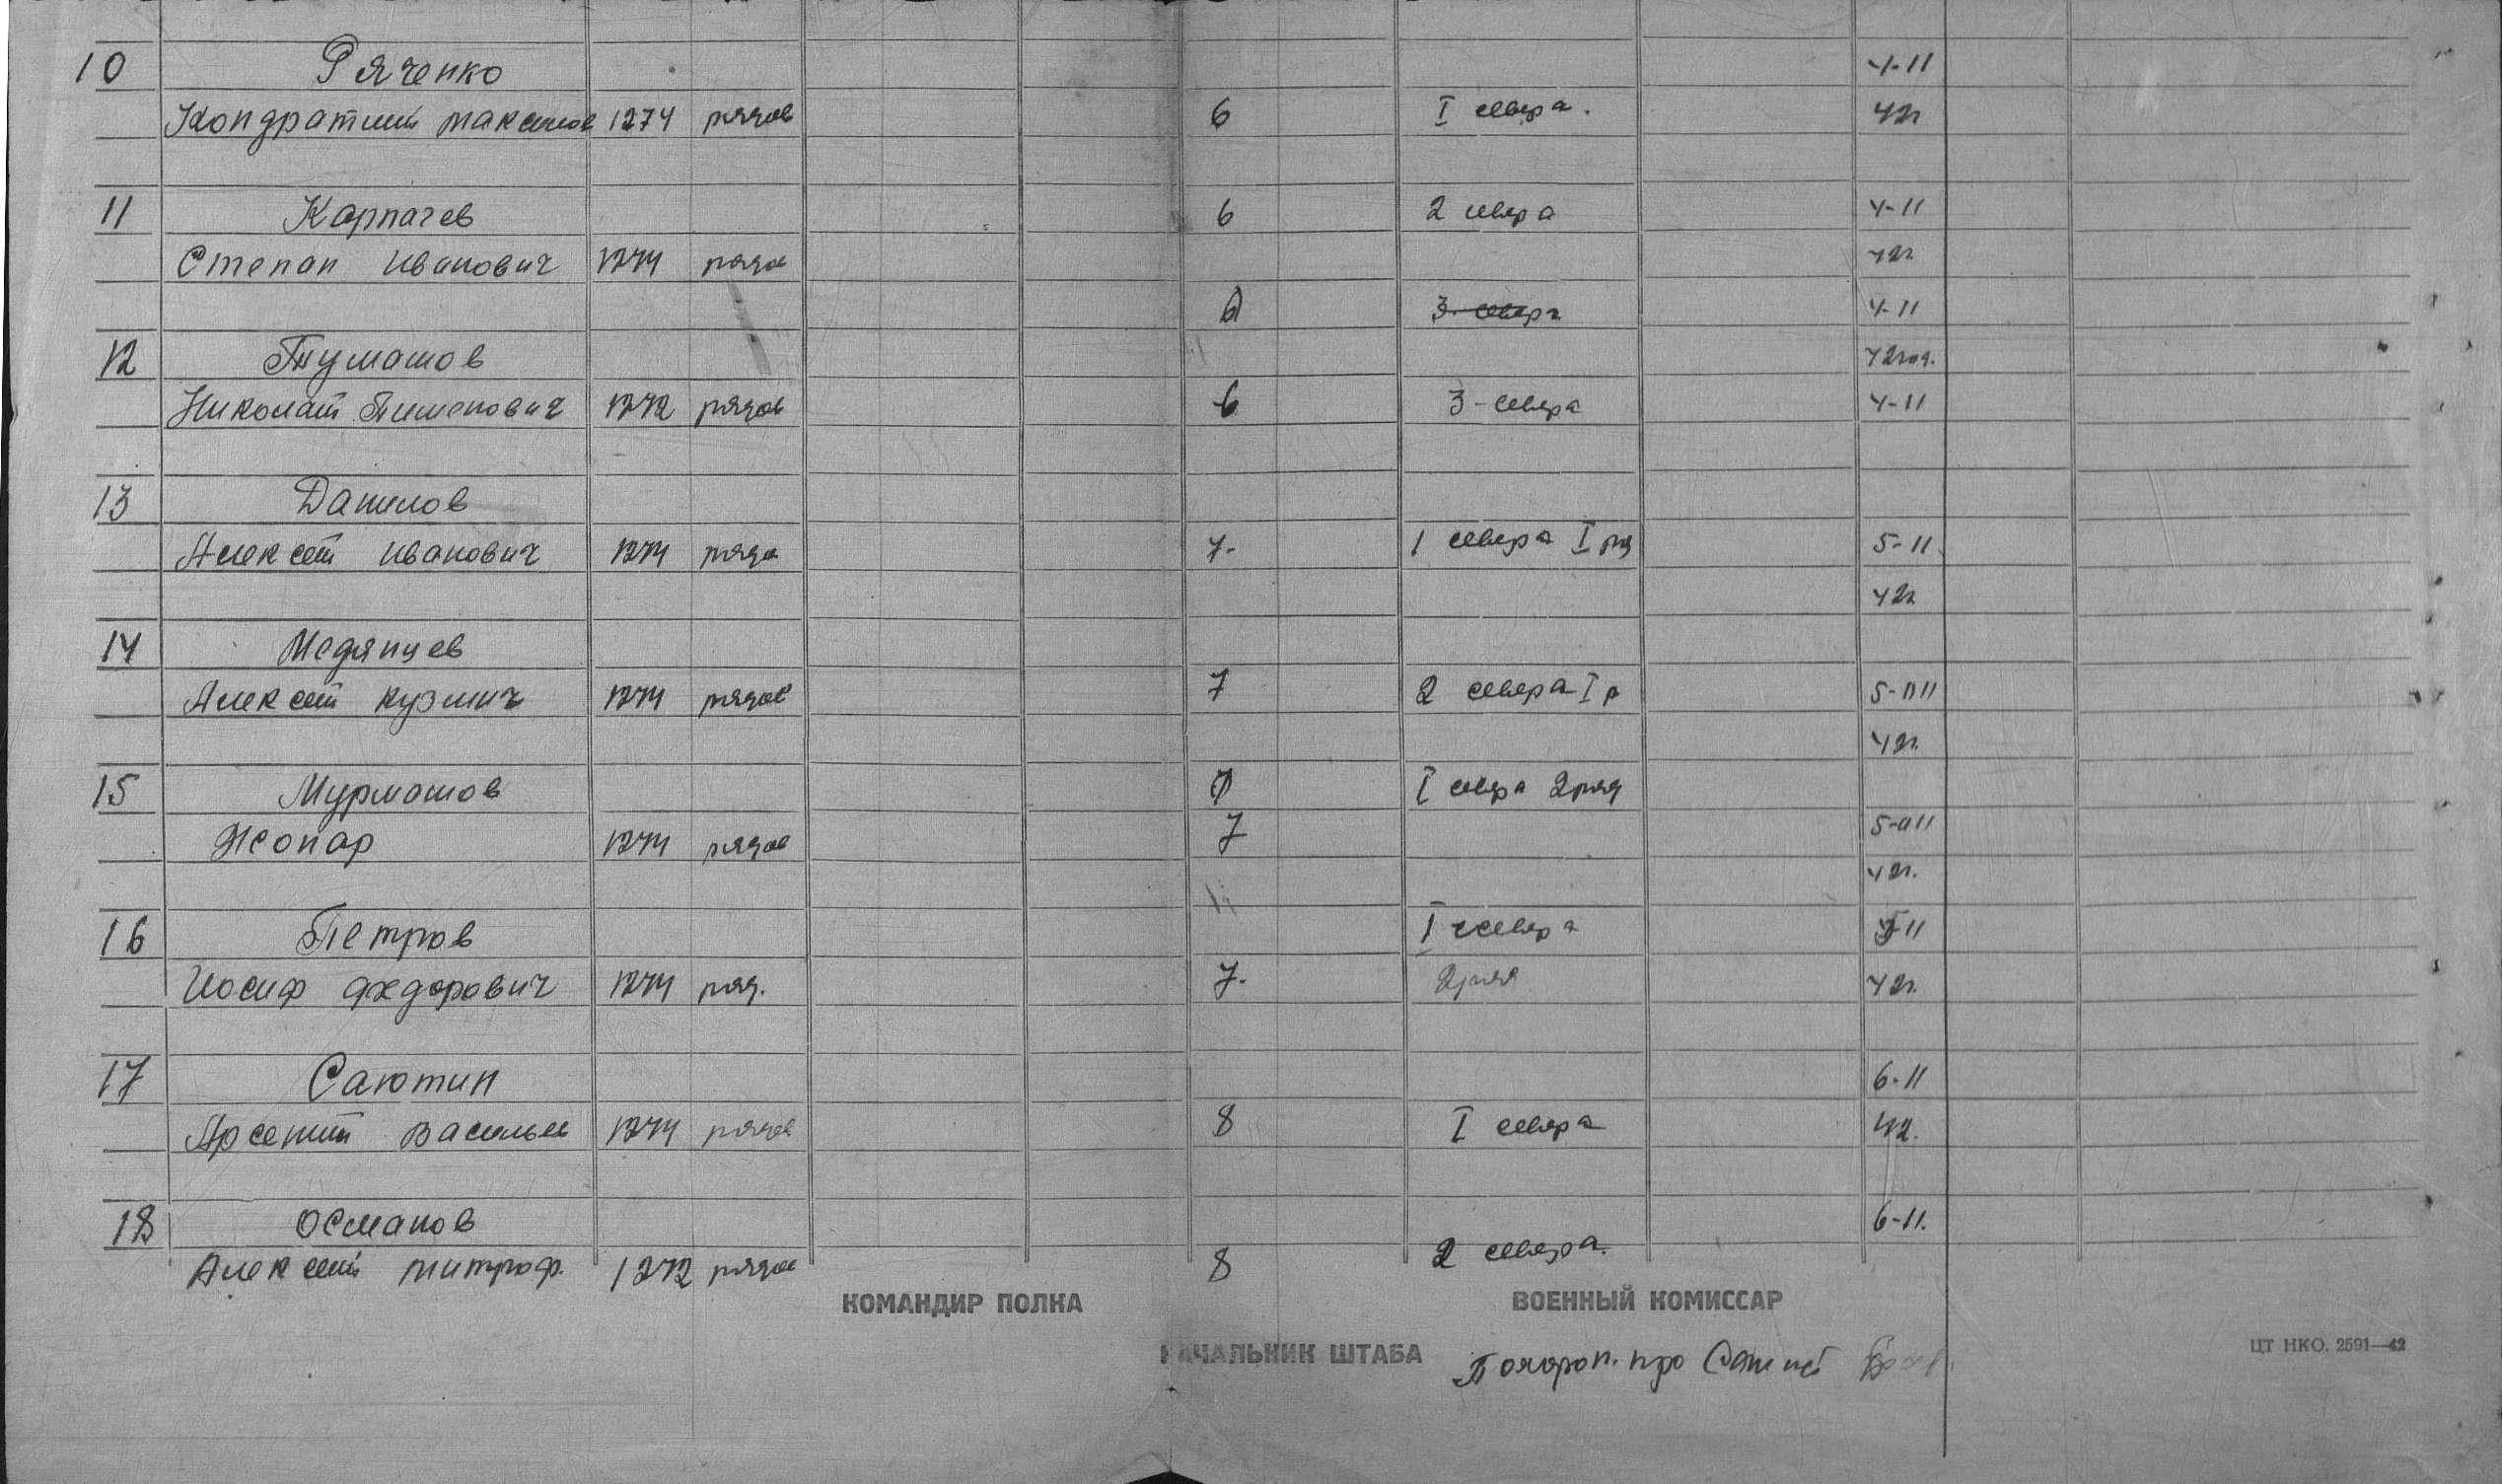 10 Ряченко 4-11
Кондратий Максимов 1274 рядов 6 I севера. 42г
11 Карпачев 6 2 севера 4-11
Степан Иванович 1274 рядов 42г.
6 3 севера 4-11
12 Тумашов 42год.
Николай Пименович 1272 рядов 6 3-севера 4-11
13 Данилов
Алексей Иванович 1274 рядо 7- 1 севера I ряд 5-11
42г
14 Медянцев
Алексей Кузмич 1274 рядов 7 2 севера I р 5-11
42г.
15 Мурмашов 7 I севера 2 ряд
Жопар 1274 рядов 7 5-11
42г.
16 Петров I севера 5-11
Иосиф Федорович 1274 ряд. 7. 2 ряд 42г.
17 Саютин 6-11
Арсений Василье 1274 рядов 8 I севера 42.
18 Османов 6-11.
Алексей Митроф. 1272 рядов 8 2 севера.
КОМАНДИР ПОЛКА ВОЕННЫЙ КОМИССАР
НАЧАЛЬНИК ШТАБА Похорон. про
ЦТ НКО. 2591—42